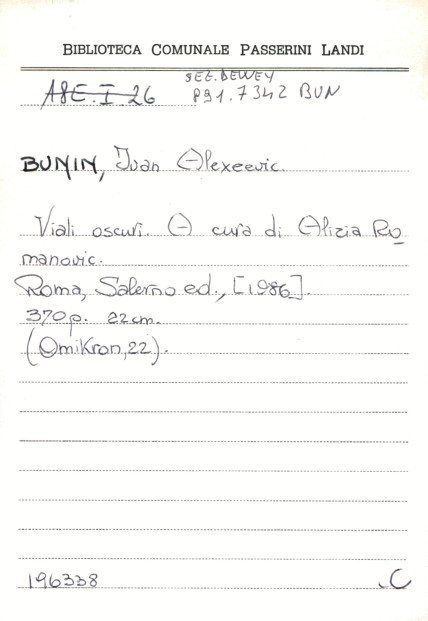 BIBLIOTECA COMUNALE PASSERINI LANDI
SEZ. DEWEY
A8E.I.26 891.7342 BUN
BUNIN, Ivan Alexeevic.
Viali oscuri. A cura di Alizia Ro
manovic.
Roma, Salerno ed., [1986].
370 p. 22 cm.
(Omikron, 22).
196338 C